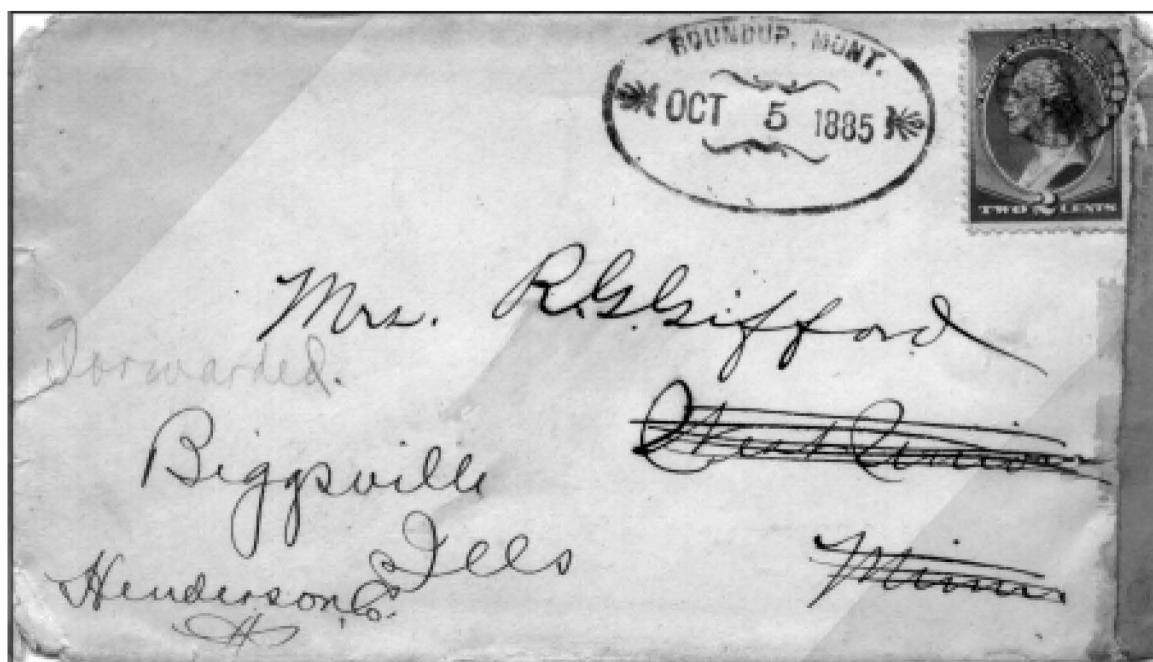 ROUNDUP, MONT.
OCT 5 1885
TWO 2 CENTS
Mrs. R.G. Gifford
Forwarded.
West Union
Minn
Biggsville
Ills
Henderson Co.